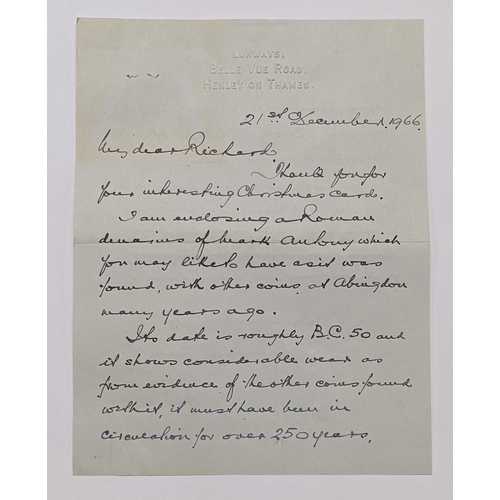 LUNWAYS,
BELLE VUE ROAD,
HENLEY ON THAMES.
21st December. 1966.
My dear Richard.
Thank you for
your interesting Christmas card.
I am enclosing a Roman
denarius of Mark Antony which
you may like to have as it was
found, with other coins, at Abingdon
many years ago.
Its date is roughly B.C. 50 and
it shows considerable wear as
from evidence of the other coins found
with it, it must have been in
circulation for over 250 years.